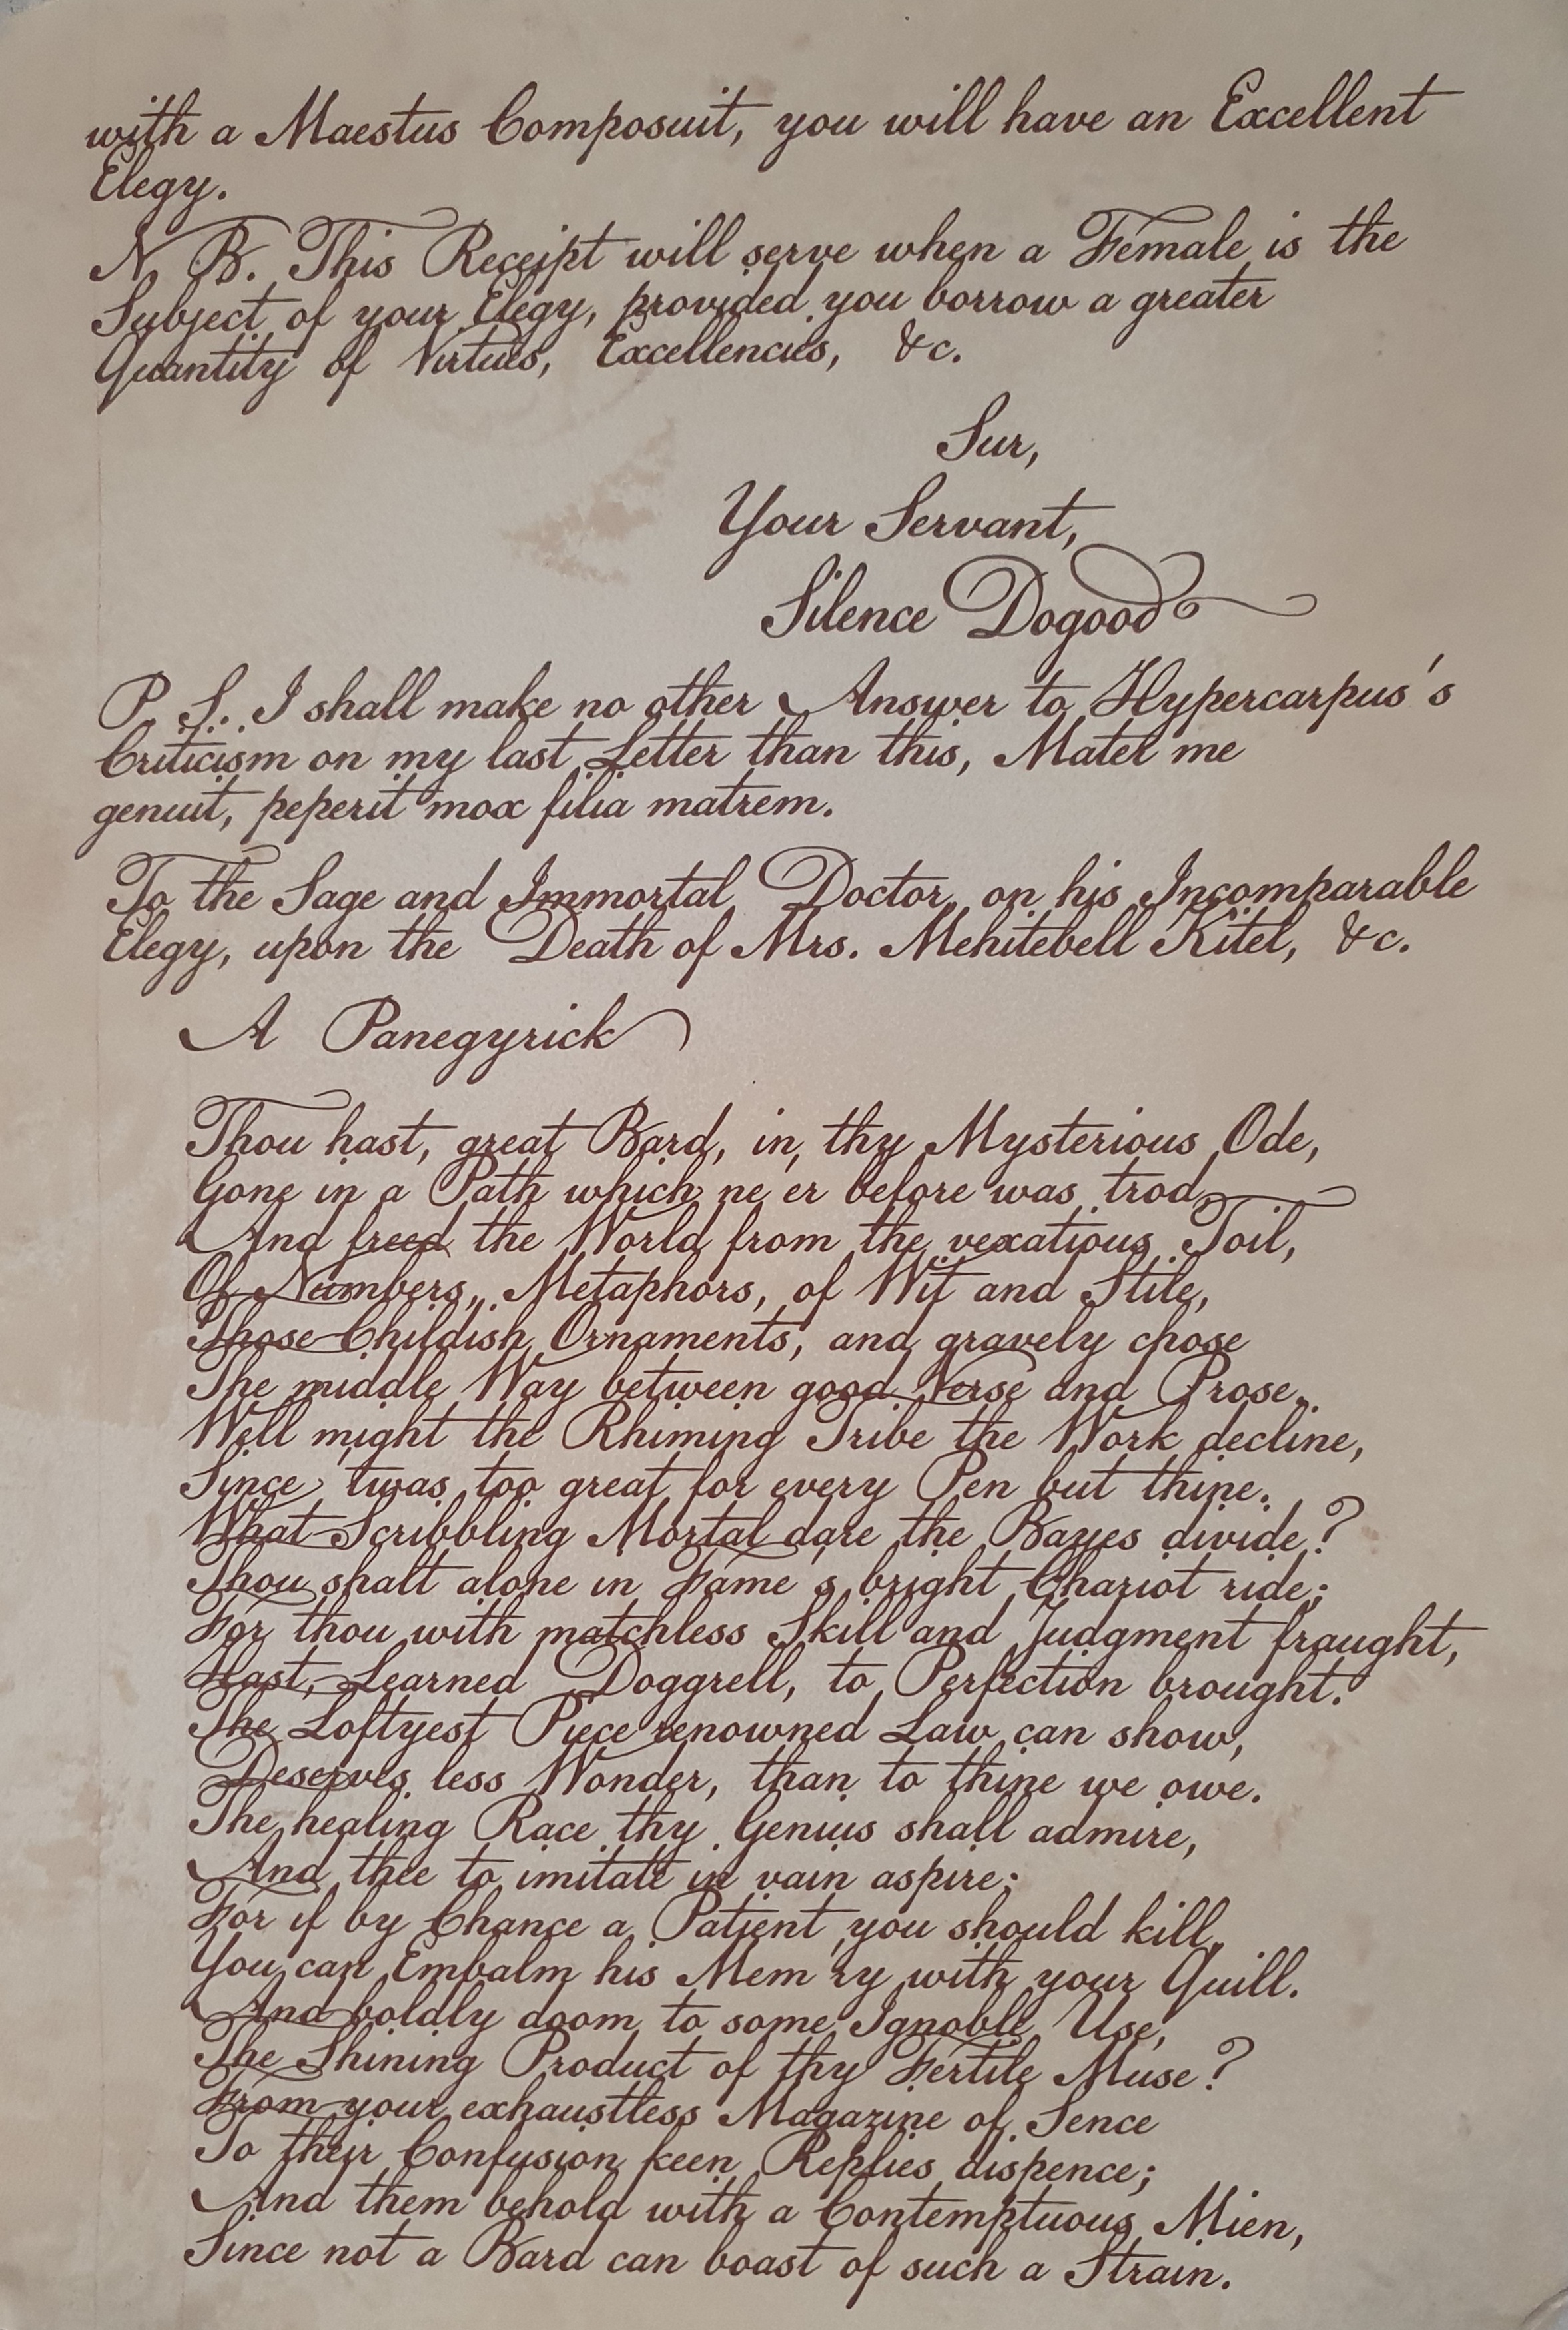 with a Maestus Composuit, you will have an Excellent
Elegy.
N. B. This Receipt will serve when a Female is the
Subject of your Elegy, provided you borrow a greater
Quantity of Virtues, Excellencies, &c.
Sur,
Your Servant,
Silence Dogood
P. S. I shall make no other Answer to Hypercarpus's
Criticism on my last Letter than this, Mater me
genuit, peperit mox filia matrem.
To the Sage and Immortal Doctor on his Incomparable
Elegy, upon the Death of Mrs. Mehitebell Kitel, &c.
A Panegyrick
Thou hast, great Bard, in thy Mysterious Ode,
Gone in a Path which ne er before was trod,
And freed the World from the vexatious Toil,
Of Numbers, Metaphors, of Wit and Stile,
Those Childish Ornaments, and gravely chose
The middle Way between good Verse and Prose.
Well might the Rhiming Tribe the Work decline,
Since twas too great for every Pen but thine.
What Scribbling Mortal dare the Bayes divide?
Thou shalt alone in Fame s bright Chariot ride;
For thou with matchless Skill and Judgment fraught,
Hast, Learned Doggrell, to Perfection brought.
The Loftyest Piece renowned Law can show,
Deserves less Wonder, than to thine we owe.
The healing Race thy Genius shall admire,
And thee to imitate in vain aspire;
For if by Chance a Patient you should kill,
You can Embalm his Mem'ry with your Quill.
And boldly doom to some Ignoble Use,
The Shining Product of thy Fertile Muse?
From your exhaustless Magazine of Sence
To their Confusion keen Replies dispence;
And them behold with a Contemptuous Mien,
Since not a Bard can boast of such a Strain.